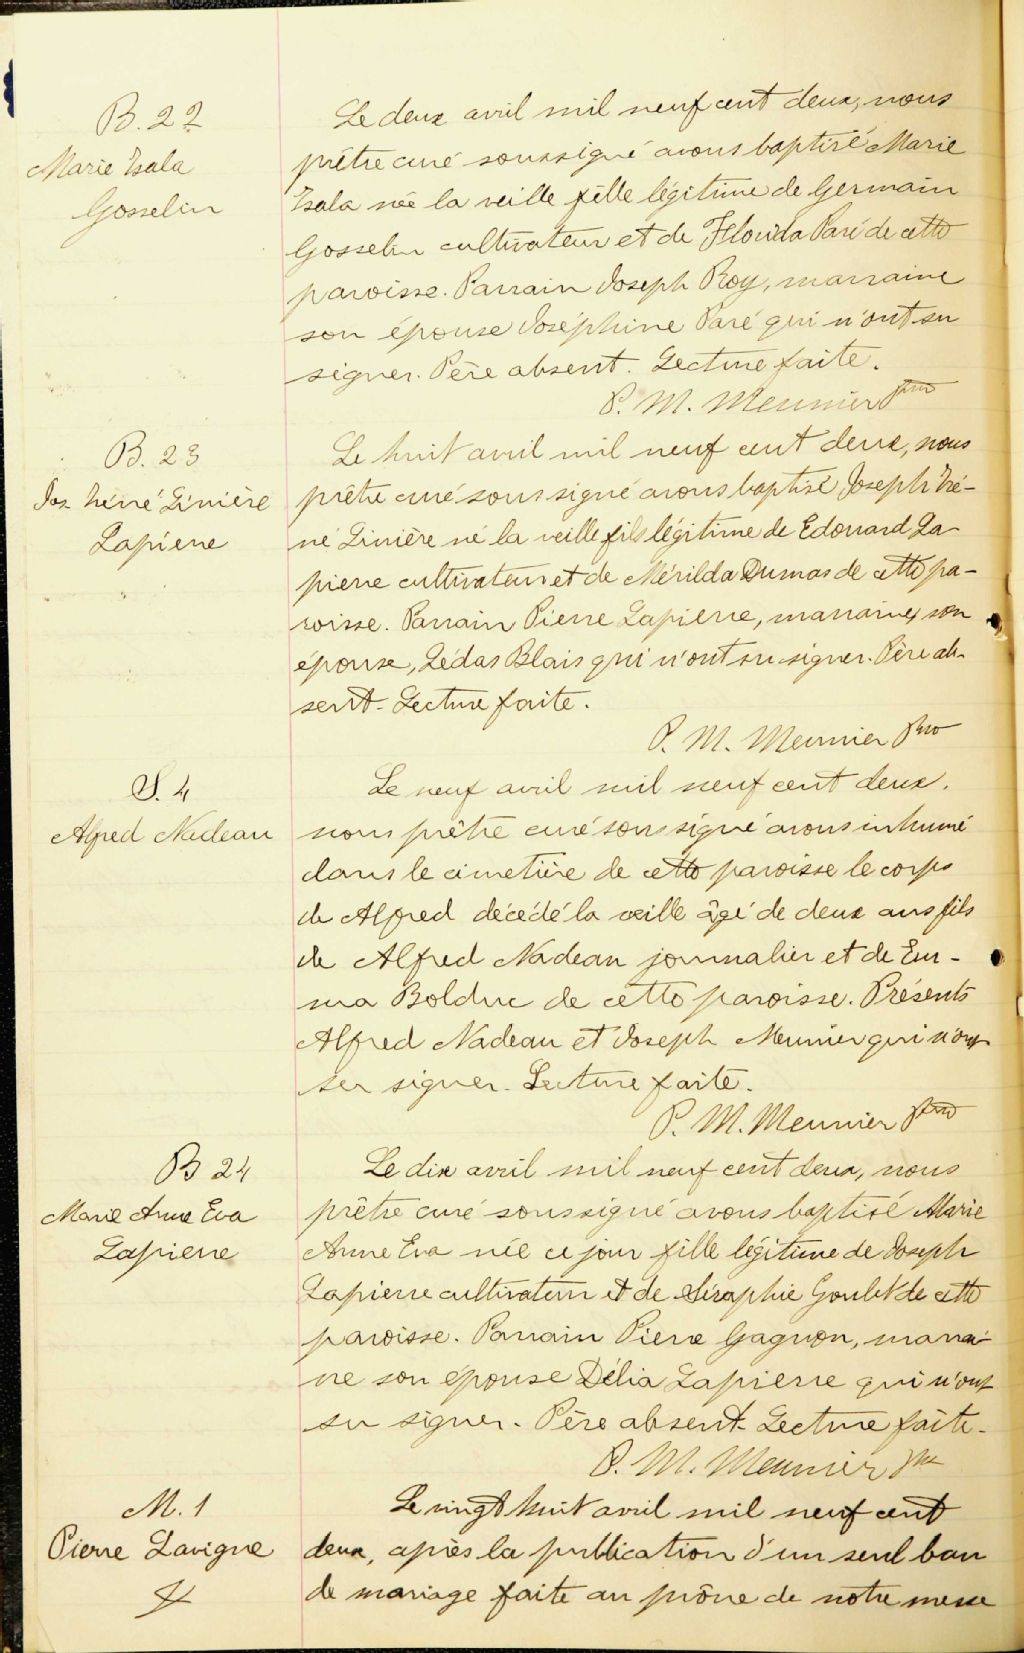 B. 22
Marie Ezala
Gosselin
Le deux avril mil neuf cent deux, nous
prêtre curé soussigné avons baptisé Marie
Ezala née la veille fille légitime de Germain
Gosselin cultivateur et de Florida Paré de cette
paroisse. Parrain Joseph Roy, marraine
son épouse Joséphine Paré qui n'ont su
signer. Père absent. Lecture faite.
P. M. Meunier ptre
B. 23
Jos. Linière
Lapierre
Le huit avril mil neuf cent deux, nous
prêtre curé soussigné avons baptisé Joseph
né Linière né la veille fils légitime de Edouard La-
pierre cultivateur et de Mérilda Dumas de cette pa-
roisse. Parrain Pierre Lapierre, marraine, son
épouse, Lédas Blais qui n'ont su signer. Père ab-
sent. Lecture faite.
P. M. Meunier ptre
S. 4
Alfred Nadeau
Le neuf avril mil neuf cent deux,
nous prêtre curé soussigné avons inhumé
dans le cimetière de cette paroisse le corps
de Alfred décédé la veille âgé de deux ans fils
de Alfred Nadeau journalier et de Em-
ma Bolduc de cette paroisse. Présents
Alfred Nadeau et Joseph Meunier qui n'ont
su signer. Lecture faite.
P. M. Meunier ptre
B 24
Marie Anne Eva
Lapierre
Le dix avril mil neuf cent deux, nous
prêtre curé soussigné avons baptisé Marie
Anne Eva née ce jour fille légitime de Joseph
Lapierre cultivateur et de Séraphie Goulet de cette
paroisse. Parrain Pierre Gagnon, marrai-
ne son épouse Délia Lapierre qui n'ont
su signer. Père absent. Lecture faite.
P. M. Meunier ptre
M. 1
Pierre Lavigne
&
Le vingt huit avril mil neuf cent
deux, après la publication d'un seul ban
de mariage faite au prône de notre messe